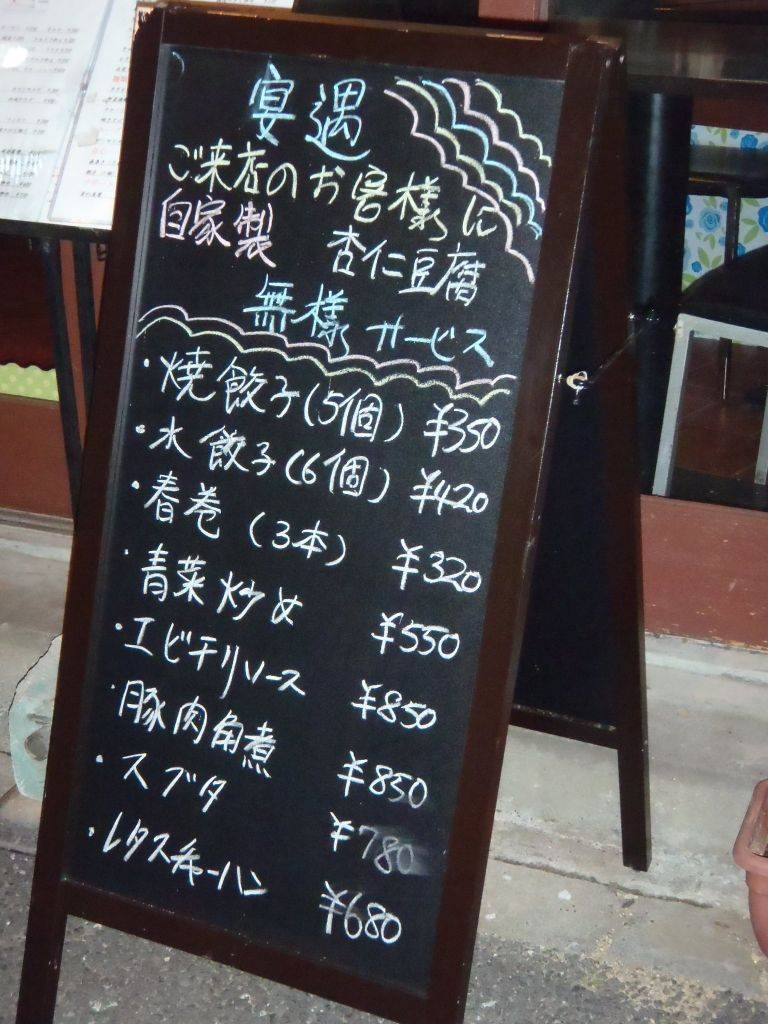 宴遇
ご来店のお客様に
自家製 杏仁豆腐
無様サービス
・焼餃子(5個) ¥350
・水餃子(6個) ¥420
・春巻(3本) ¥320
・青菜炒め ¥550
・エビチリソース ¥850
・豚肉角煮 ¥850
・スブタ ¥780
・レタスチャーハン ¥680